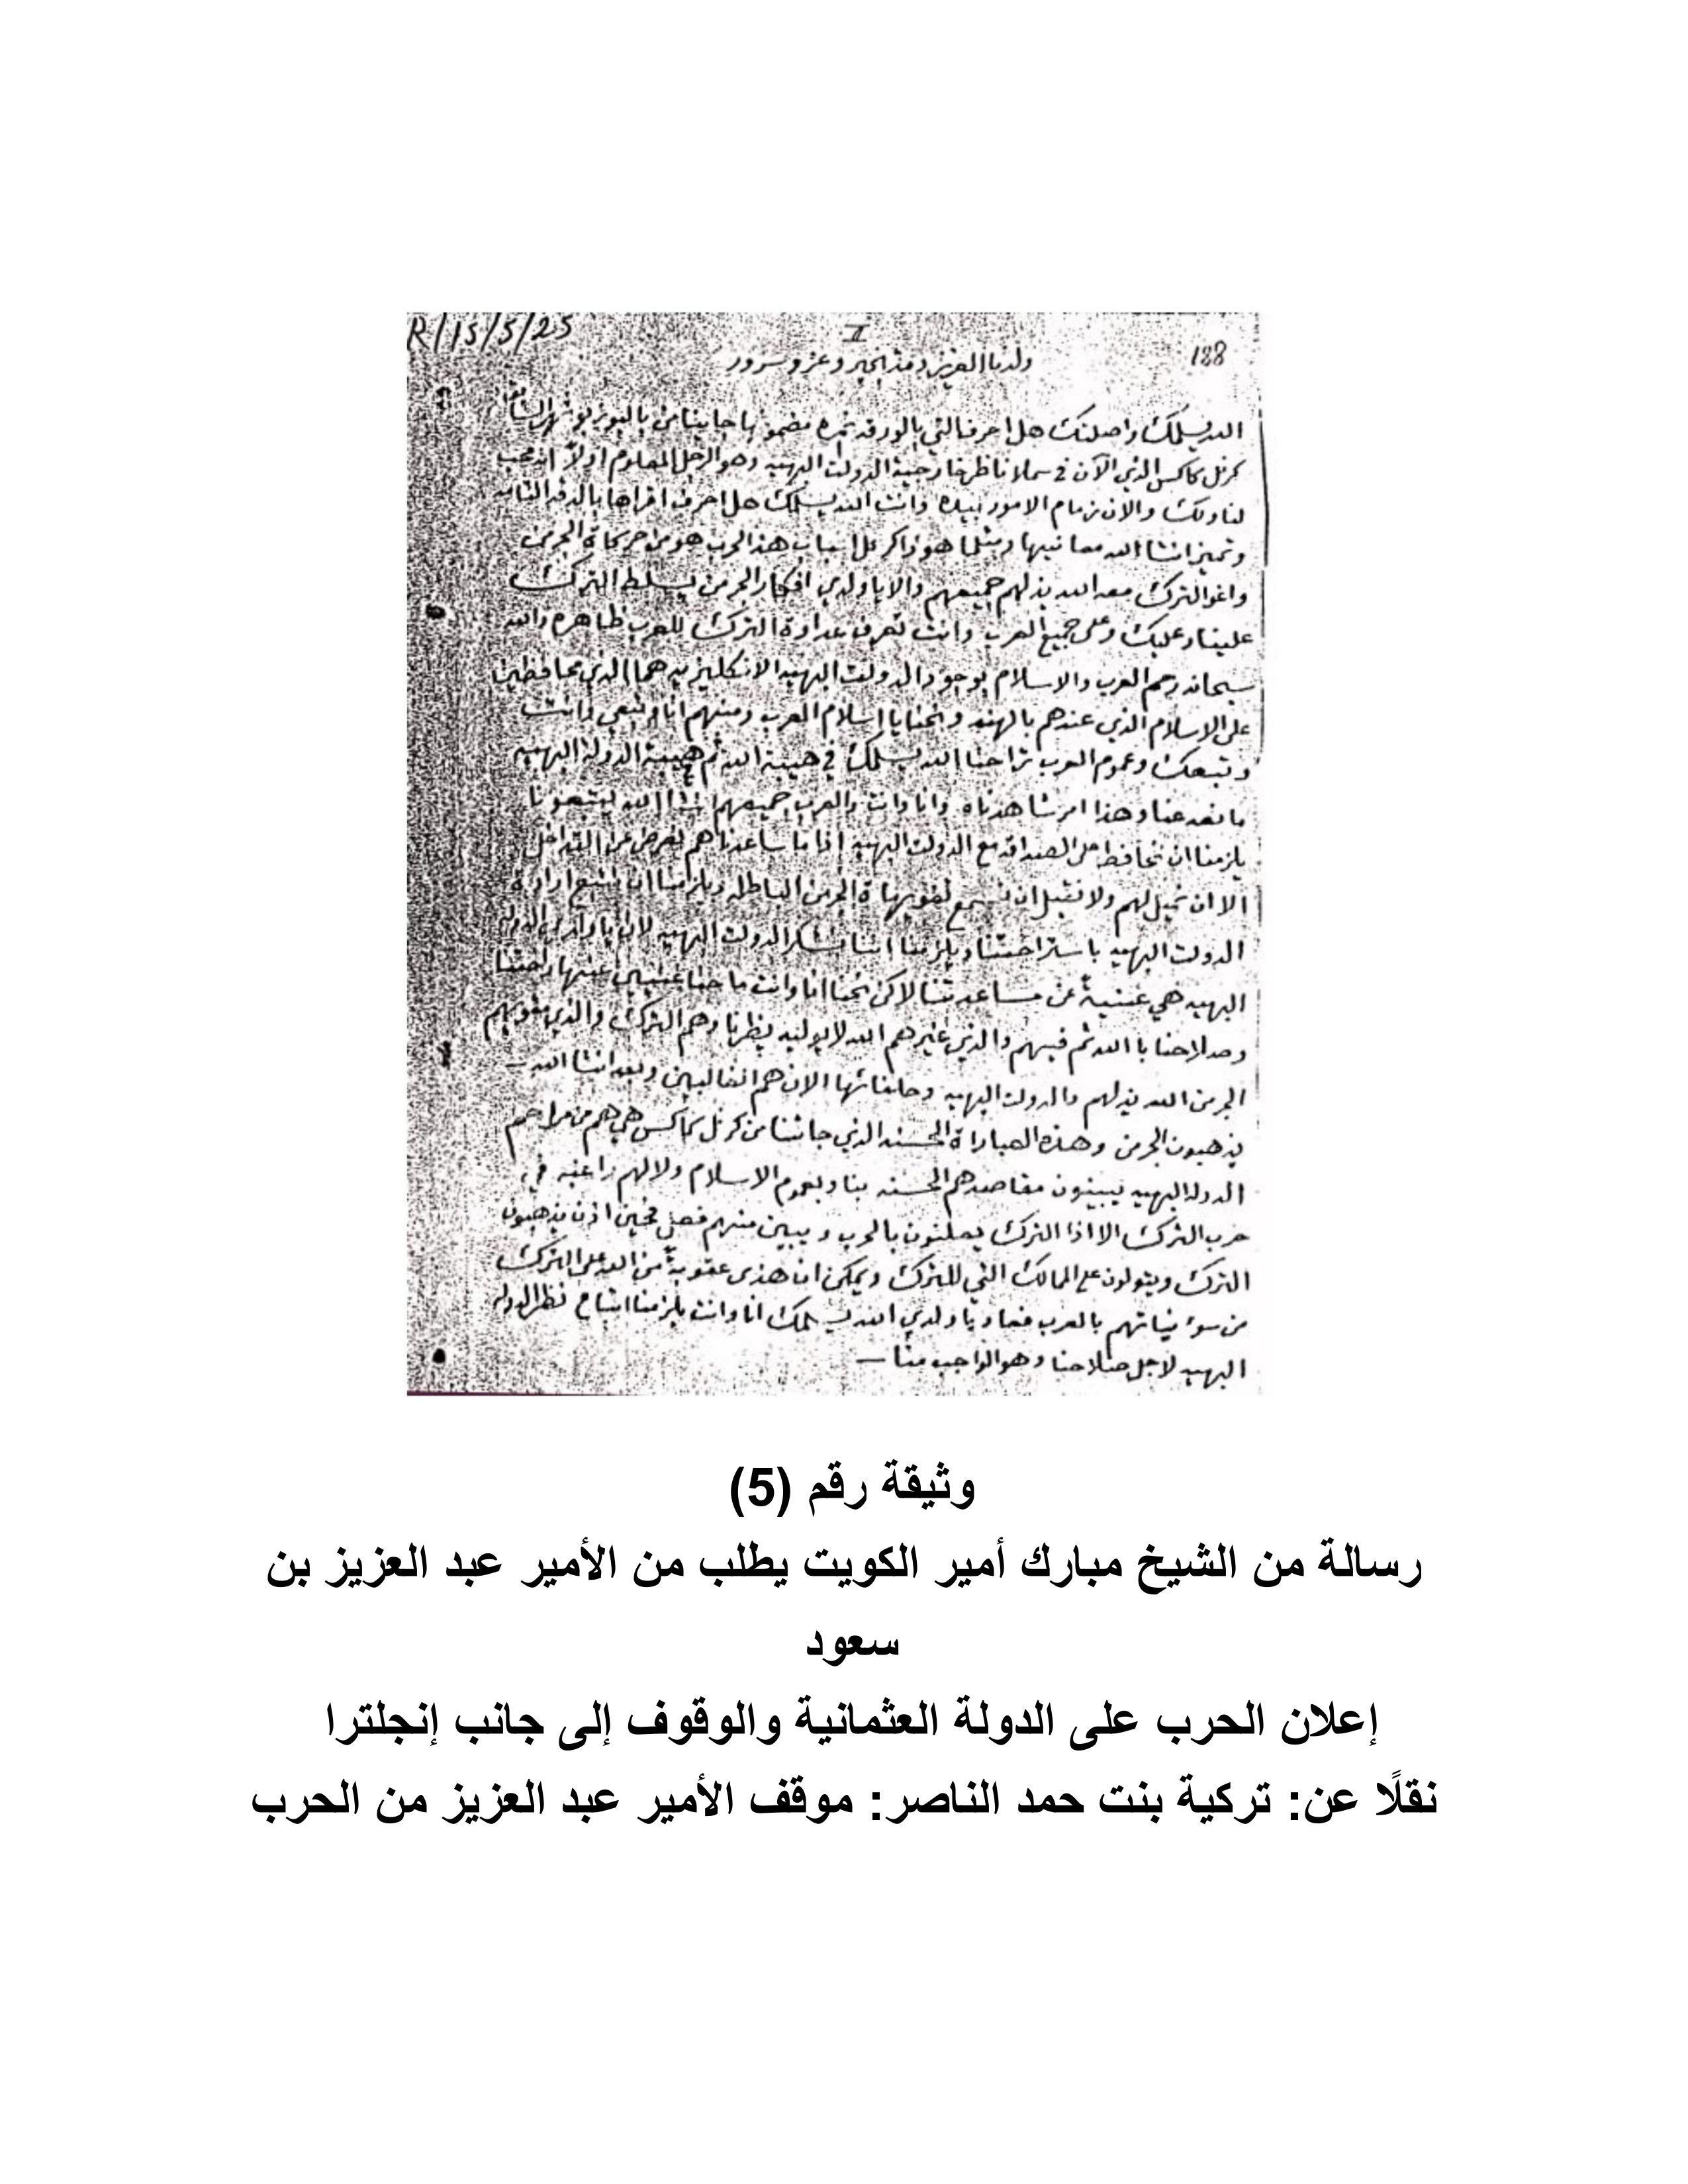 R/15/5/25
II
188
ولدنا العزيز دمت بخير وعز وسرور
الله يسلمك واصلتك هل احرف التي بالورقه نمره مضمونها جايينا من باليوز بوشهر السابق
كرنل كاكس الذي الآن في سملا ناظر خارجية الدولت البهيه وهو الرجل المعلوم اولاً انه محب
لنا ولك والان زمام الامور بيده وانت الله يسلمك هل احرف اقراها بالدقه التامه
وتميز انشاالله معانيها ومثلما هو ذاكر عل اسباب هذا الحرب هو من حركاة الجرمن
واغو الترك معه الله يذلهم جميعهم والا يا ولدي افكار الجرمن يسلط الترك
علينا وعليك وعلى جميع العرب وانت تعرف عداوة الترك للعرب ظاهره والله
سبحانه رحم العرب والاسلام بوجود الدولت البهيه الانكليزيه هما الذي محافظين
على الاسلام الذي عندهم بالهند وانحنا يا اسلام العرب ومنهم انا وتبعي وانت
وتبعك وعموم العرب تراحنا الله يسلمك في هيبة الله ثم هيبة الدولة البهيه
ما نعد عنا وهذا امر شاهدناه وانا وانت والعرب جميعهم انشاالله ليتبعونا
يلزمنا ان نحافظ على الصداقه مع الدولت البهيه اذا ما ساعدناهم لغرض عن التداخل
الا ان نميل لهم ولا نقبل ان نسمع لغويهاة الجرمن الباطله ويلزمنا ان نتبع ارادة
الدولت البهيه باستراحتنا ويلزمنا اننا نشكر الدولت البهيه لان يا ولدي الدوله
البهيه هي غنيةٌ عن مساعدتنا لاكن نحنا انا وانت ما حنا غنيين عنها راحتنا
وصلاحنا با الله ثم فيهم والذي غيرهم الله لا يوليه بنظرنا وهم الترك والذي مغويهم
الجرمن الله يذلهم والدولت البهيه وحلفائها الان هم الغالبين وبعد انشاالله
يذهبون الجرمن وهذه العباراة الحسنه الذي جاتنا من كرنل كاكس هي هم من مراحم
الدولة البهيه يبينون مقاصدهم الحسنه بنا وبعموم الاسلام ولا لهم راغبه في
حرب الترك الا اذا الترك يعلنون بالحرب ويبين منهم فعل فحين اذن يذهبون
الترك ويتولون على الممالك التي للترك ويمكن ان هذى عقوبةٌ من الله على الترك
من سوء نياتهم بالعرب فعاد يا ولدي الله يسلمك انا وانت يلزمنا اتباع نظر الدوله
البهيه لاجل صلاحنا وهو الواجب منا
وثيقة رقم (5)
رسالة من الشيخ مبارك أمير الكويت يطلب من الأمير عبد العزيز بن
سعود
إعلان الحرب على الدولة العثمانية والوقوف إلى جانب إنجلترا
نقلًا عن: تركية بنت حمد الناصر: موقف الأمير عبد العزيز من الحرب